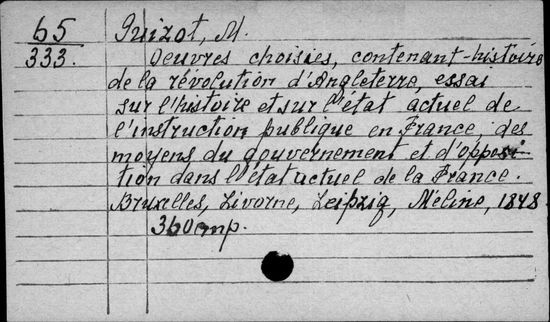 65 Guizot, M.
333. Oeuvres choisies, contenant-histoire
de la révolution d'Angleterre, essai
sur l'histoire et sur l'état actuel de
l'instruction publique en France, des
moyens du gouvernement et d'opposi-
tion dans l'état actuel de la France.
Bruxelles, Livorne, Leipzig, Méline, 1848.
360 стр.